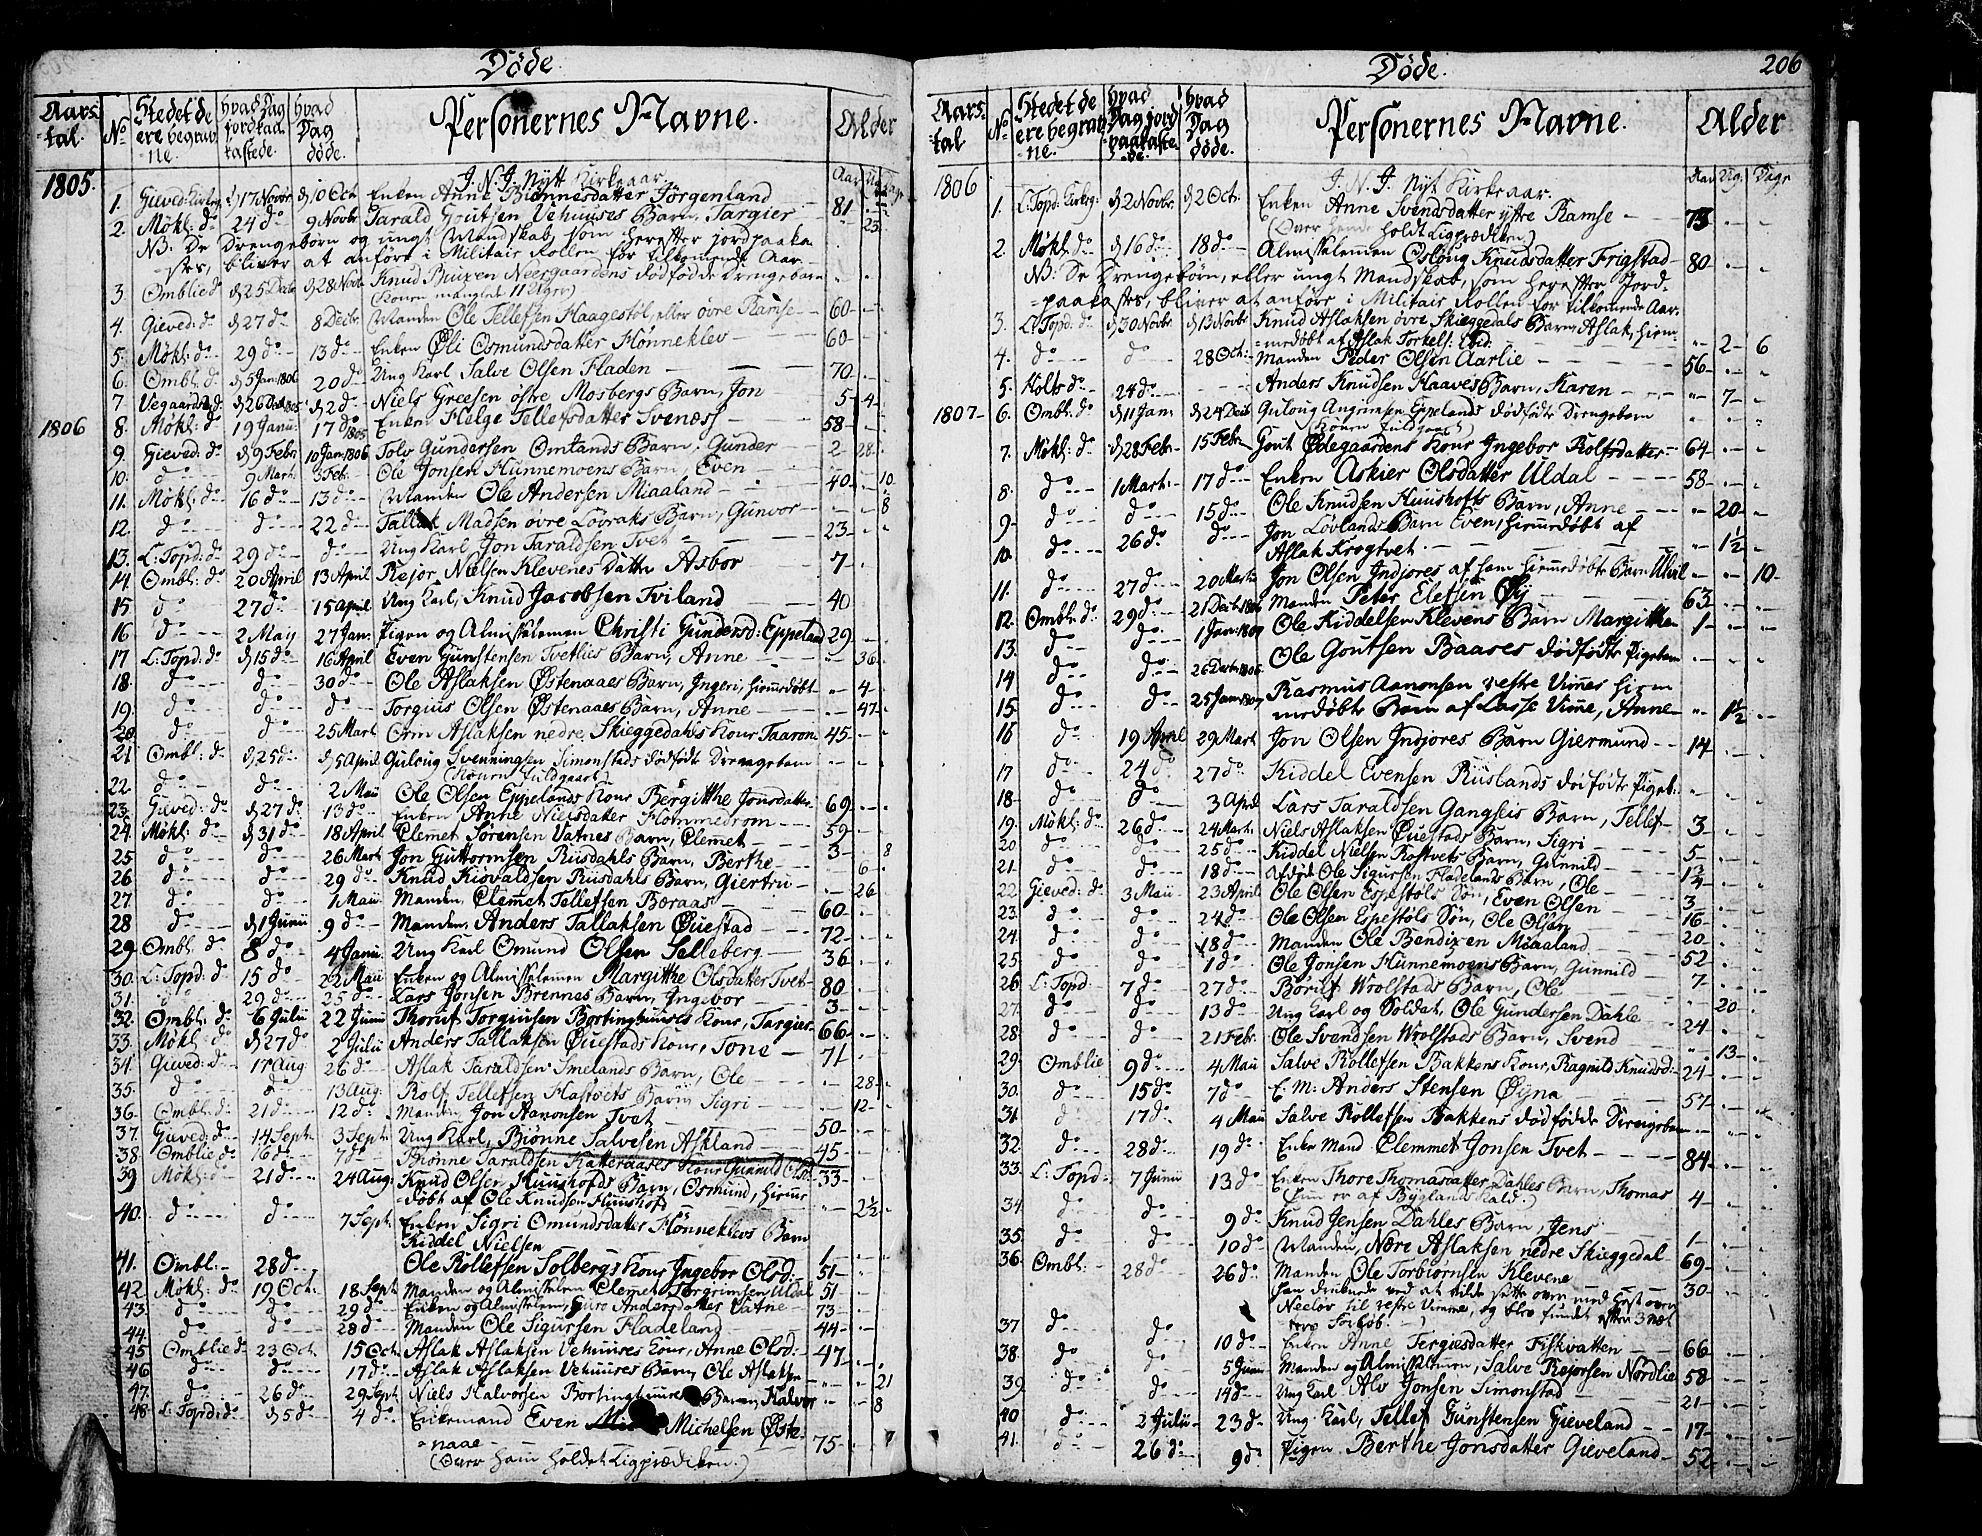 Døde.
Aarstal. No Stedet de ere begravne. hvad Dag jordpaakastede. hvad Dag døde. Personernes Navne. Alder
1805. J. N. J. Nÿtt Kirkeaar. Aar Ug. Dage
1. Gieved: Kirkeg: d 17 Novbr d 10 Oct Enken Anne Biønnesdatter Jørgenland 81
2. Møkl: do 24 do 9 Novbr Tarald Goutsen Vehuuses Barn, Targier 23
NB. De Drengebørn og ungt Mandskab, som herefter jordpaaka-
stes, bliver at anføre i Militair Rollen for tilkomende Aar
3. Omblie do d 25 Decbr d 28 Novbr Knud Buxen Neergaardens dødfødde Drengebarn
(Konen manglet 11 Uger)
4. Gieved: do d 27 do 8 Decbr Manden Ole Tellefsen Haagestøl, eller øvre Ramse 60
5. Møkl: do 29 do 13 do Enken Øli Osmundsdatter Hønneklev 60
6. Ombl: do d 5 Jan: 1806 20 do Ung Karl Salve Olsen Fladen 70
7. Vegaardsh: do d 26 Decbr 1805 d 2 do Niels Greesen østre Mosbergs Barn, Jon 5 4
1806 8. Møkl: do 19 Janu: 17 do 1805 Enken Helge Tellefsdatter Svenæss 58
9. Gieved: do d 9 Febr 10 Jan: 1806 Tolv Gundersen Omlands Barn, Gunder 2 28
10. do 9 Mart: 3 Feb: Ole Jonsen Hunnemoens Barn, Even 10
11. Møkl: do 16 do 13 do Manden Ole Andersen Miaaland 40 8
12. do do 22 do Tallak Madsen øvre Løvraks Barn, Gunvor
13. L: Topd: do 29 do do Ung Karl Jon Taraldsen Tvet 23
14. Ombl: do 20 April 13 April Rejor Nielsen Klevenes Datter Asbor 7
15. do 27 do 15 April Ung Karl, Knud Jacobsen Tviland 40
16 do 2 May 27 Jan: Pigen og Almisselemen Christi Gundersd: Eppeland 29
17 L: Topd: do d 15 do 16 April Even Gunstensen Tvetlies Barn, Anne 36
18. do do 30 do Ole Aslaksen Østenaaes Barn, Ingeri, hiemedøbt 4
19. do do do Torgius Olsen Østenaaes Barn, Anne 47
20. do do 25 Mart Orm Aslaksen nedre Skieggedahls Kone Taaron 45
21 Ombl: do d 25 do d 5 April Guloug Svenningsen Simonstads dødfødt Drengebarn
(Konen fuldgaaet)
22. do do 2 Mai Ole Olsen Eppelands Kone Bergitthe Jonsdatter 69
23. Gieved: do d 27 do 13 do Enken Anne Nielsdatter Flommedrom 59
24. Møkl: do d 31 do 18 April Clemet Sørensen Vatnes Barn, Clemet 3 8
25 do do 26 Mart Jon Guttormsen Rusdahls Barn, Berthe 6
26 do do 29 do Knud Kiovaldsen Rusdahls Barn, Giertru 26
27 do do 1 Maii Manden, Clemet Tellefsen Boraas 60
28 do d 1 Junii 9 do Manden, Anders Tallaksen Øuestad 72
29 Ombl: do 8 do 4 Junii Ung Karl Omund Olsen Selleberg 36
30. L: Topd: do 15 do 22 Mai Enken og Almisselemen Margithe Olsdatter Tvet 80
31. do 29 do 25 do Lars Jonsen Brennes Barn, Ingebor 3
32. Ombl: do 6 Julii 22 Junii Thoruf Torgiusen Bortinghuuses Kone, Targier 66
33. Møkl: do d 27 do 2 Julii Anders Tallaksen Øuestads Kone, Tone 71
34. Gieved: do 17 Aug 26 do Aslak Taraldsen Smelands Barn, Ole 28
35. do do 13 Aug. Rolf Tellefsen Hastvets Barn Sigri 12
36. Ombl: do 21 do 12 do Manden Jon Aanonsen Tvet 50
37. Gieved: do 14 Sept: 3 Sept: Ung Karl, Biønne Salvesen Askland 45
38 Omblie do 16 do 7 do Biønne Taraldsen Katteraases Kone Gunnild Olsd: 33
39 Møkl: do 21 do 24 Aug Knud Olsen Huushofds Barn, Osmund, hiemme
døbt af Ole Knudsen Huushofd 2½
40. do do 7 Sept: Enken Sigri Omundsdatter Hønneklevs Barn
Kiddel Nielsen 1
41. Ombl: 28 do Ole Rollefsen Solbergs Kone Ingebor Olsd: 51
42. Møkl: do 19 Oct: 18 Sept Manden og Almisselemen Clemet Torgrimsen Uldal 51
43. do do 29 do Enken og Almisselemen, Guro Andersdatter Vatne 73
44. do do 28 do Manden Ole Sigursen Fladeland 44
45 Omblie do 23 Oct. 15 Oct: Aslak Aslaksen Vehuuses Kone, Anne Olsd: 47
46 do do 17 do Aslak Aslaksen Vehuuses Barn, Ole Aslaksen 21
47. do 26 do 29 Sept Niels Halvorsen Bortinghuuses Barn, Halvor 8
48 L: Topd: do d 5 do 4 do Enkemand Even Michelsen Øste-
naae 75
(Over ham holdet Ligprædiken.)
Døde. 206
Aars-tal No Stedet de ere begravne. hvad Dag jordpaakastede. hvad Dag døde. Personernes Navne. Alder
1806 J. N. J. Nÿt Kirkeaar. Aar Ug: Dage
1. L: Topd: Kirkeg: d 2 Novbr. d 2 Oct: Enken Anne Svendsdatter yttre Ramse 73
(Over hende holdt Ligprædiken)
2. Møkl: do d 16 do 18 do Almisselemen Osloug Knudsdatter Frigstad 80
NB: De Drengebørn, eller ungt Mandskab, som herefter Jord-
paakastes, bliver at anføre i Militair Rollen for tilkomende Aar.
3. L: Topd: do d 30 Novbr. d 13 Novbr Knud Aslaksen øvre Skieggedals Barn Aslak, hiem-
medøbt af Aslak Torkels: Ibid: 2 6
4. do do 28 Oct: Manden Peder Olsen Aarlie 56
5. Holts do 24 do Anders Knudsen Haaves Barn, Karen 7
1807 6. Ombl: do d 11 Jan: d 24 Decb Guloug Angrimsen Eppelands dødfødte Drengebarn
(Konen fuldgaaet)
7. Møkl: do d 28 Febr 15 Febr Gout Ødegaardens Kone Ingebor Rolfsdatter 64
8. do 1 Mart: 17 do Enken Askier Olsdatter Uldal 58
9. do do 15 do Ole Knudsen Huushofts Barn, Anne 20
10. do 26 do do Jon Løvlands Barn Even, hiemedøbt af
Aslak Krogtvet 1½
11. do 27 do 20 Martii Jon Olsen Indjores af ham hiemedøbte Barn Ulvil 10
12. Ombl: do 29 do 21 Decbr 1806 Manden Peter Elefsen Øy 63
13. do do 1 Jan: 1807 Ole Kiddelsen Klevens Barn Margitthe 1
14 do do 26 Decbr: 1806 Ole Goutsen Baases dødfødte Pigebarn
15. do do 25 Jan: 1807 Rasmus Aanonsen vestre Vimes hiem
medøbte Barn af Lasse Vime, Anne 1½
16 do 19 April 29 Mart Jon Olsen Indjores Barn Giermund 14
17 do 24 do 27 do Kiddel Evensen Ruslands dødfødte Pigeb:
18 do do 3 April Lars Taraldsen Gangseis Barn, Tellef 3
19. Møkl: do 26 do 24 Mart: Niels Aslaksen Øuestads Barn, Sigri 5
20 do do 25 do Kiddel Nielsen Rostvets Barn, Gunnild
21. do do 18 do Afdøde Ole Sigursen Fladelands Barn, Ole 3
22 Gieved: do 3 Maii 23 April Ole Olsen Espestøls Søn, Even Olsen 16
23. do do 24 do Ole Olsen Espestøls Søn, Ole Olsen 20
24. do do 18 do Manden Ole Bendixen Miaaland 52
25. do do 1 do Ole Jonsen Hunnemoens Barn, Gunnild 7
26 L: Topd: 7 do 27 do Borilf Wrolstads Barn, Ole 20
27. do do 13 do Ung Karl og Soldat, Ole Gundersen Dahle 24
28. do do 21 Febr. Ole Svendsen Wrolstads Barn, Svend 13
29. Omblie 9 do 4 Maii Salve Rollefsen Bakkens Kone, Ragnild Knudsd: 24
30. do 15 do 7 do E: M: Anders Stensen Øyna 57
31. do 17 do 4 Maii Salve Rollefsen Bakkens dødfødde Drengebarn
32. do 28 do 19 do Enke Mand Clemmet Jonsen Tvet 84
33. L: Topd: 7 Junii 13 do Enken Thore Thomasdatter Dahles Barn, Thomas 4
(hun er af Byglands Kald:)
34. do do 9 do Knud Jensen Dahles Barn, Jens 1
35. do do 10 do Manden, Nære Aslaksen nedre Skieggedal 69
36. Ombl: 28 do 26 do Manden Ole Torbiørnsen Klevene 30
han druknede ved at vilde sætte over med Hest over
Neeløv til vestre Vimme, og blev fundet efter 3
37 do do 10 do Enken Anne Tergiusdatter Fiskvatten 66
38. do do 5 Junii Manden og Almisselemen, Salve Rejorsen Nordlie 58
39. do do 14 do Ung Karl Alv Jonsen Simonstad 21
40 do 2 Julii 23 do Ung Karl, Tellef Gunstensen Gieveland 17
41. do 26 do 9 do Pigen Berthe Jonsdatter Gieveland 52